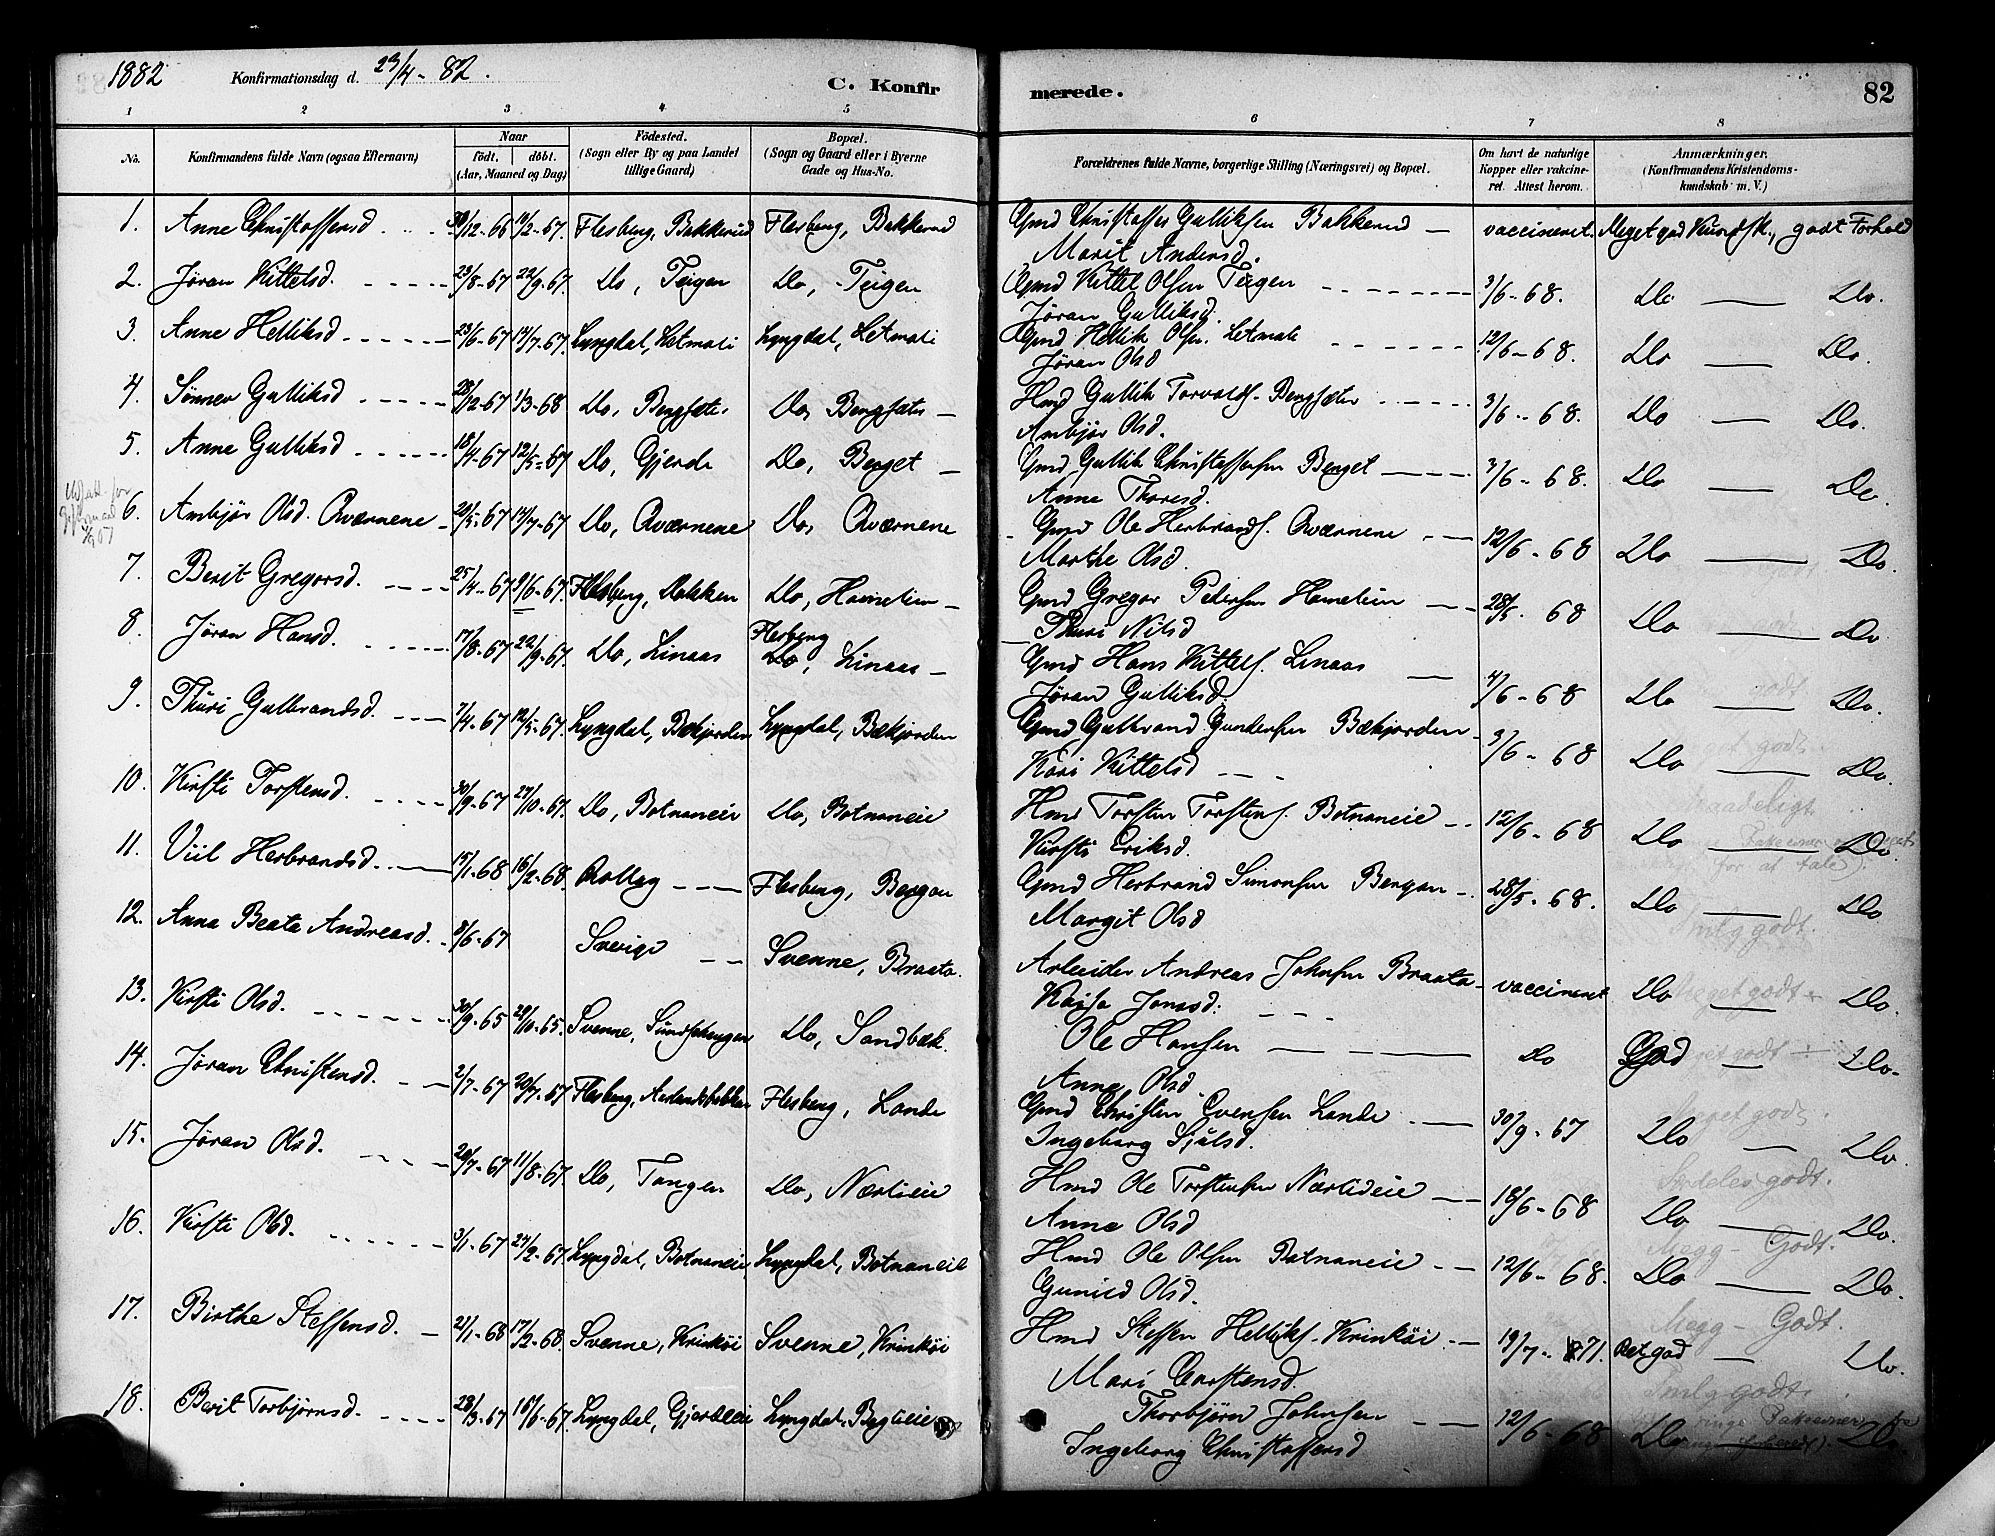 1882 Konfirmationsdag d. 23/4 - 82. C. Konfirmerede. 82
1 2 3 4 5 6 7 8
No. Konfirmandens fulde Navn (ogsaa Efternavn) Naar födt. döbt. (Aar, Maaned og Dag) Födested. (Sogn eller By og paa Landet tillige Gaard) Bopæl. (Sogn og Gaard eller i Byerne Gade og Hus-No. Forældrenes fulde Navne, borgerlige Stilling (Næringsvei) og Bopæl. Om havt de naturlige Kopper eller vaccineret. Attest herom. Anmærkninger. (Konfirmandens Kristendomskundskab m. V.)
1. Anne Christoffersd. 30/12-66 10/2-67. Flesberg, Bakkerud Flesberg, Bakkerud Gmd Christoffer Gulliksen Bakkerud vaccineret. Meget god Kundsk., godt Forhold
Marit Andersd.
2. Jøran Kittelsd. 23/8-67 22/9-67. Do, Teigen Do, Teigen Gmd Kittel Olsen Teigen 3/6-68. Do Do.
Jøran Gulliksd.
3. Anne Helliksd 23/6-67 14/7-67. Lyngdal, Letmoli Lyngdal, Letmoli Gmd Hellik Olsen Letmoli 12/6-68. Do Do.
Jøran Olsd
4. Sønnev Gulliksd 28/12-67 1/3-68 Do, Bergsæter Do, Bergsæter Hmd Gullik Torvalds. Bergsæter 3/6-68. Do Do.
Ambjør Olsd.
5. Anne Gulliksd 18/4-67 12/5-67 Do, Gjerde Do, Berget Gmd Gullik Christoffersen Berget 3/6-68. Do Do.
Anne Thoresd.
6. Ambjør Olsd. Qværnene 20/5-67 14/7-67 Do, Qværnene Do, Qværnene Gmd Ole Herbrands. Qværnene 12/6-68 Do Do.
Marthe Olsd.
7. Berit Gregorsd. 25/4-67 9/6-67. Flesberg, Bakken Do, Hametien Gmd Gregor Pedersen Hametien 28/5 68 Do Do
Thuri Nilsd
8. Jøran Hansd. 17/8-67 22/9-67. Do, Linaas Flesberg Do, Linaas Gmd Hans Kittels. Linaas 4/6-68 Do Do.
Jøran Gulliksd
9. Thuri Gulbrandsd. 7/4-67 12/5-67. Lyngdal, Bækjorden Lyngdal, Bækjorden Gmd Gulbrand Gundersen Bækjorden 3/6-68 Do Do.
Kari Kittelsd
10. Kirsti Torstensd. 30/9-67 27/10-67. Do, Botnaneie Do, Botnaneie Hmd Torsten Torstens. Botnaneie 12/6-68 Do Do.
Kirsti Eriksd.
11. Viil Herbrandsd. 15/1-68 16/2-68. Rollag Flesberg, Bergan Gmd Herbrand Simonsen Bergan 28/5-68. Do Do
Margit Olsd
12. Anna Beata Andreasd. 8/6-67 Sverige Svenne, Braata. Arbeider Andreas Johnsen Braata vaccineret Do Do.
Kajsa Jonasd.
13. Kirsti Olsd. 30/9-65 29/10-65. Svenne, Do, Sandbæk. Ole Hansen do God Do.
Anne Olsd
14. Jøran Christensd. 2/7-67 20/7-67 Flesberg, Flesberg, Lande Gmd Christen Evensen Lande 30/9-67 Do Do.
Ingeborg Sjulsd.
15. Jøran Olsd. 20/7-67 11/8-67. Do, Tangen Do, Nærlieie Hmd Ole Torstensen Nærlideie 18/6-68 Do Do.
Anne Olsd
16. Kirsti Olsd. 3/1-67 24/2-67. Lyngdal, Botnaneie, Lyngdal, Botnaneie Hmd Ole Olsen Botnaneie 12/6-68. Do Do.
Gunild Olsd.
17. Birthe Steffensd. 21/1-68 17/2-68. Svenne, Krinkøi Svenne, Krinkøi Hmd Steffen Helliks. Krinkøi 19/7-71. Ret god Do.
Mari Carstensd.
18. Berit Torbjørnsd. 28/3-67 16/6-67. Lyngdal, Gjerdeleie Lyngdal, Thorbjørn Johnsen 12/6-68 Do Do.
Ingeborg Christoffersd